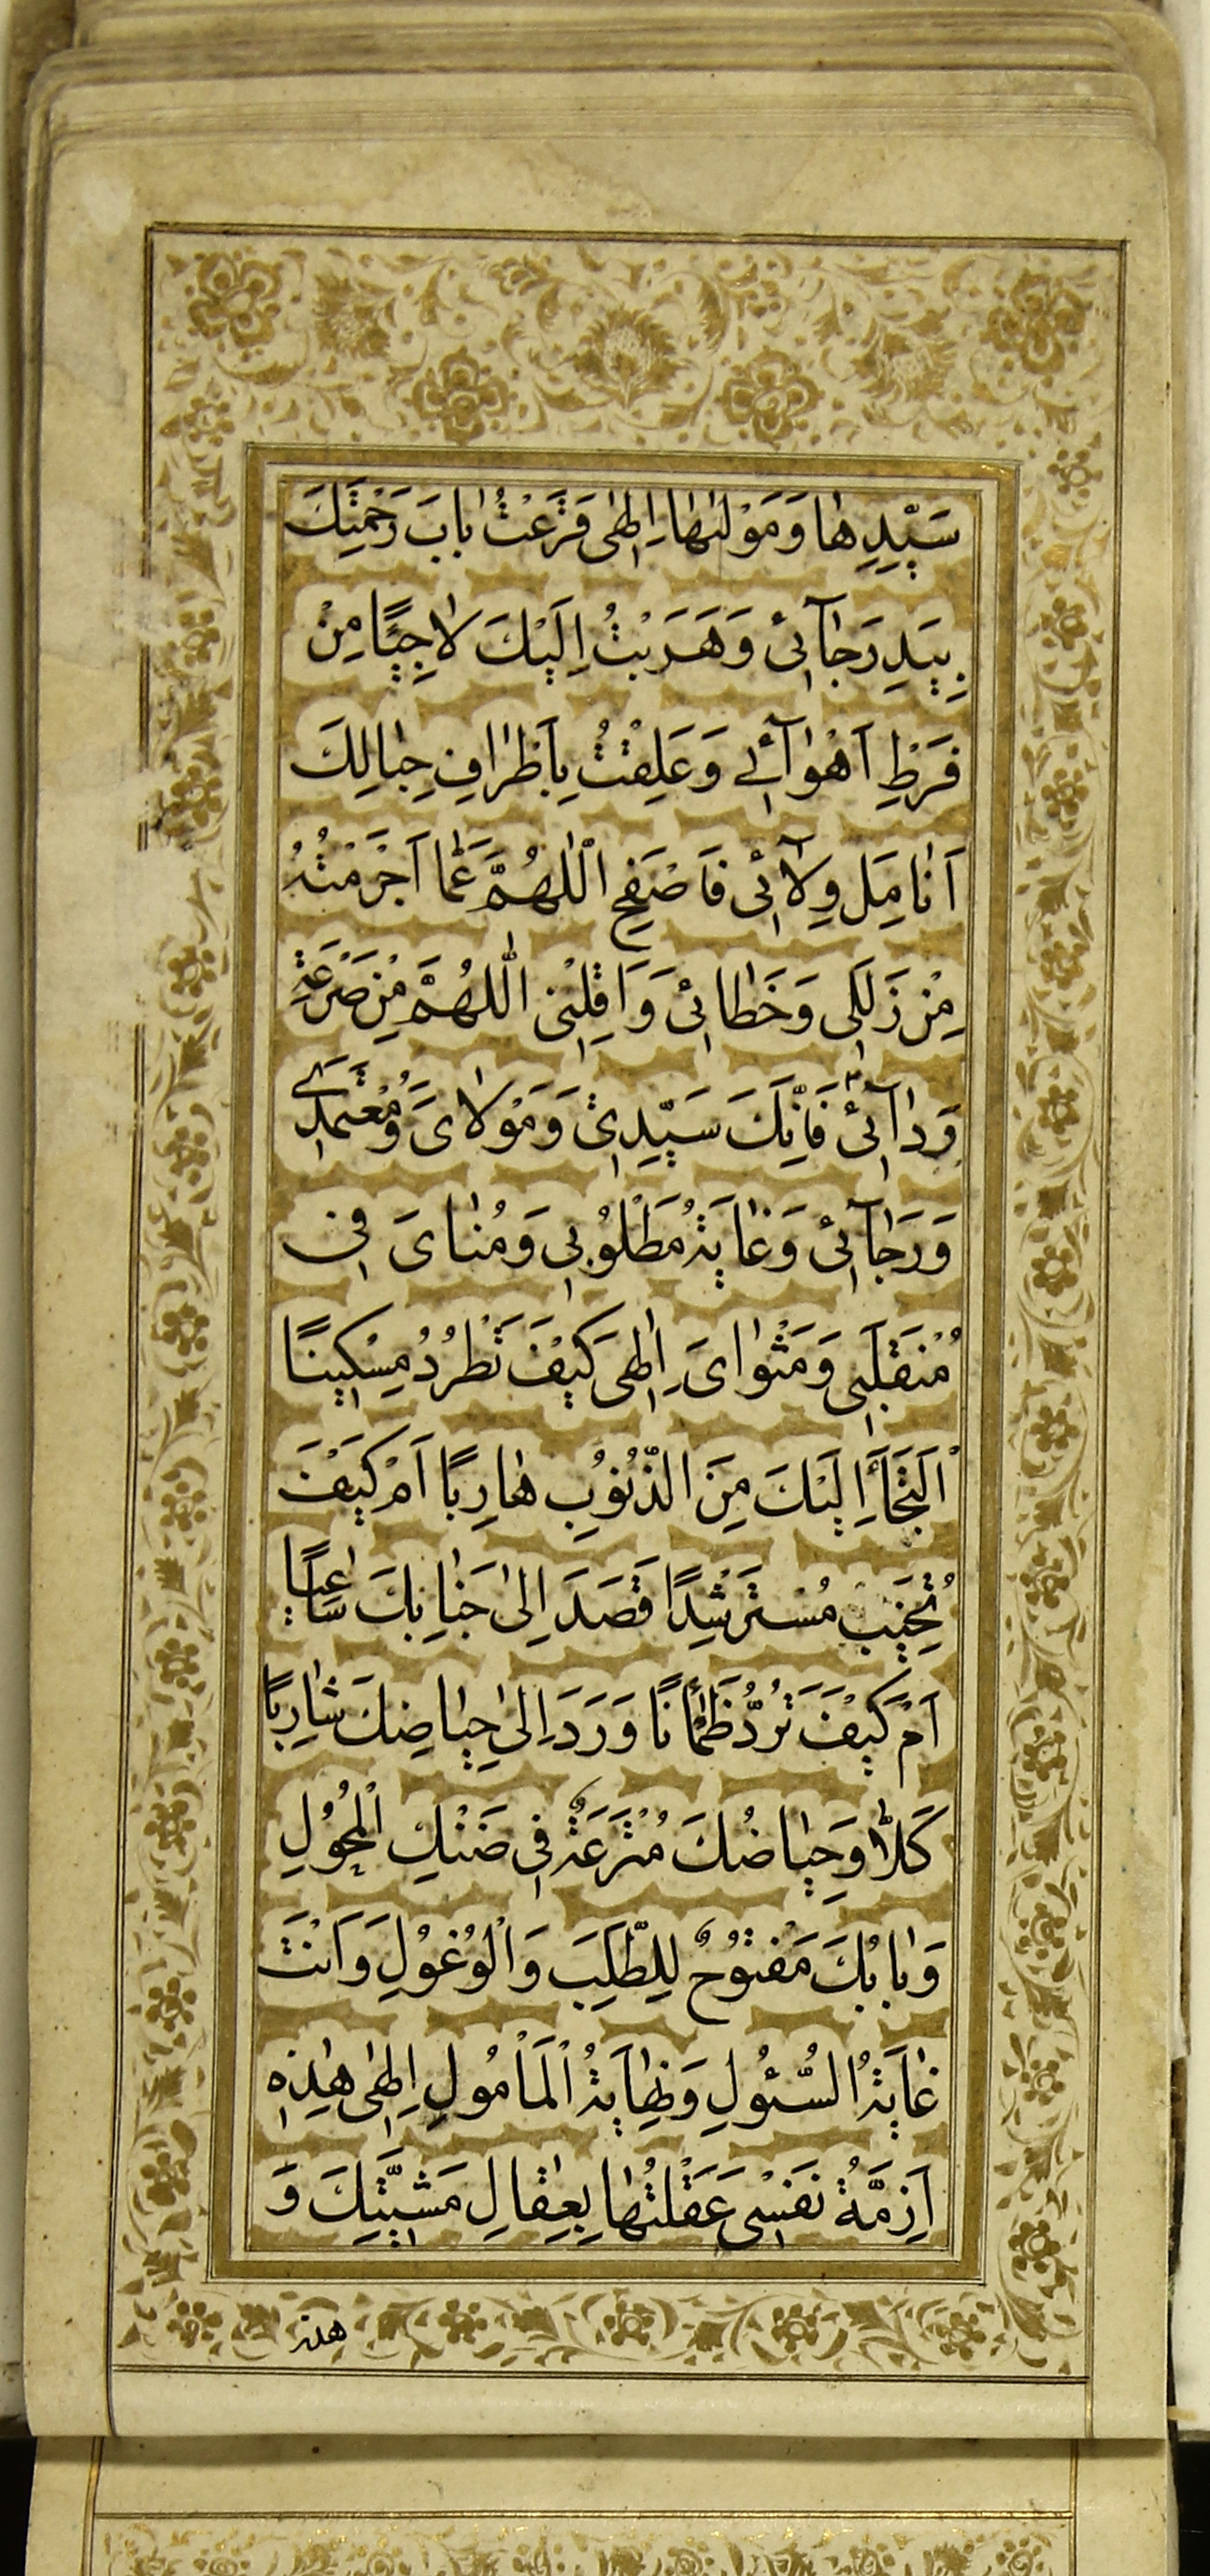 سَيِّدِهٰا وَ مَوْلٰىهٰا اِلٰهِى قَرَعْتُ بٰابَ رَحْمَتِكَ
بِيَدِ رَجٰآئِى وَ هَرَبْتُ اِلَيْكَ لاٰجِئًا مِنْ
فَرَطِ اَهْوٰآئِى وَ عَلِقْتُ بِاَطْرٰافِ حِبٰالِكَ
اَنٰامِلَ وِلآئِى فَاصْفَحِ اللّٰهُمَّ عَمّٰا اَجْرَمْتُهُ
مِنْ زَلَلِى وَ خَطٰائِى وَ اَقِلْنِى اللّٰهُمَّ مِنْ صَرْعَةِ
رِدٰآئِى فَاِنَّكَ سَيِّدِى وَ مَوْلاٰىَ وَ مُعْتَمَدِى
وَ رَجٰآئِى وَ غٰايَةُ مَطْلُوبِى وَ مُنٰاىَ فِى
مُنْقَلَبِى وَ مَثْوٰاىَ اِلٰهِى كَيْفَ تَطْرُدُ مِسْكِينًا
الْتَجَأَ اِلَيْكَ مِنَ الذُّنُوبِ هٰارِبًا اَمْ كَيْفَ
تُخَيِّبُ مُسْتَرْشِدًا قَصَدَ اِلىٰ جَنٰابِكَ سٰاعِيًا
اَمْ كَيْفَ تَرُدُّ ظَمْاٰنًا وَرَدَ اِلىٰ حِيٰاضِكَ شٰارِبًا
كَلاّٰ وَ حِيٰاضُكَ مُتْرَعَةٌ فِى ضَنْكِ الْمُحُولِ
وَ بٰابُكَ مَفْتُوحٌ لِلطَّلَبِ وَ الْوُغُولِ وَ اَنْتَ
غٰايَةُ السُّئُولِ وَ نِهٰايَةُ الْمَأْمُولِ اِلٰهِى هٰذِهِ
اَزِمَّةُ نَفْسِى عَقَلْتُهٰا بِعِقٰالِ مَشِيَّتِكَ وَ
هذه